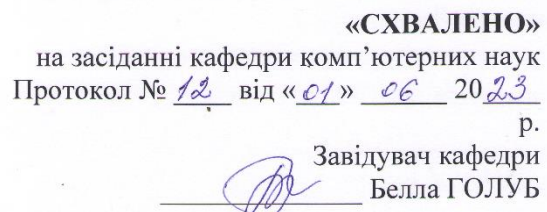 «СХВАЛЕНО»
на засіданні кафедри комп’ютерних наук
Протокол № 12 від «01» 06 2023
р.
Завідувач кафедри
Белла ГОЛУБ